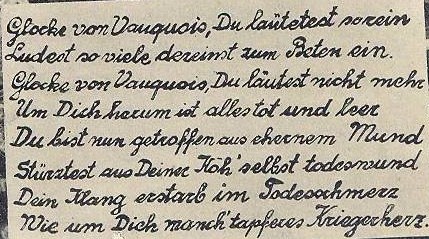 Glocke von Vauquois, Du läutetest so rein
Ludest so viele dereinst zum Beten ein.
Glocke von Vauquois, Du läutest nicht mehr
Um Dich herum ist alles tot und leer
Du bist nun getroffen aus ehernem Mund
Stürztest aus Deiner Höh' selbst todeswund
Dein Klang erstarb im Todesschmerz
Wie um Dich manch' tapferes Kriegerherz.